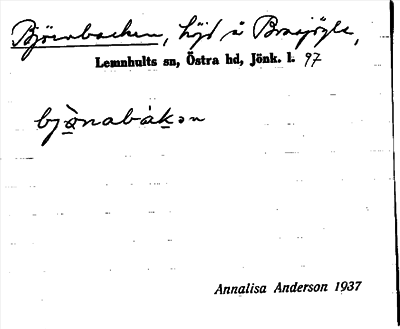 Björnbacken, höjd å
Lemnhults sn, Östra hd, Jönk. l. 97
bjö̀nabàkən
Annalisa Anderson 1937